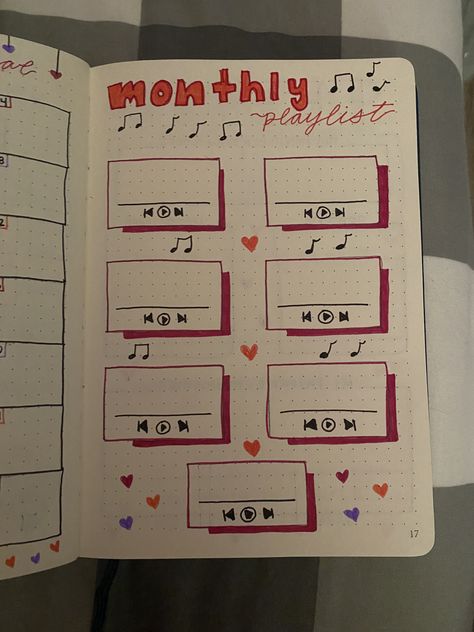 monthly
playlist
17